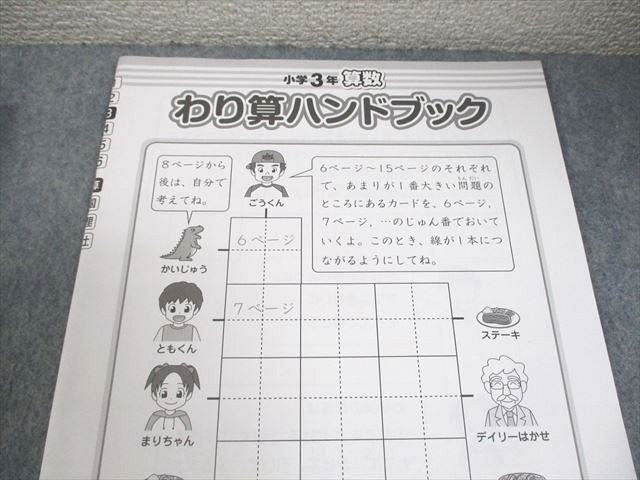 小学3年 算数
わり算ハンドブック
8ページから
後は、自分で
考えてね。
ごうくん
6ページ〜15ページのそれぞれ
で、あまりが1番大きい問題の
もんだい
ところにあるカードを、6ページ、
7ページ、…のじゅん番でおいて
いくよ。このとき、線が1本につ
ながるようにしてね。
かいじゅう
6ページ
7ページ
ともくん
ステーキ
まりちゃん
デイリーはかせ
2
3
4
5
6
算
国
理
社